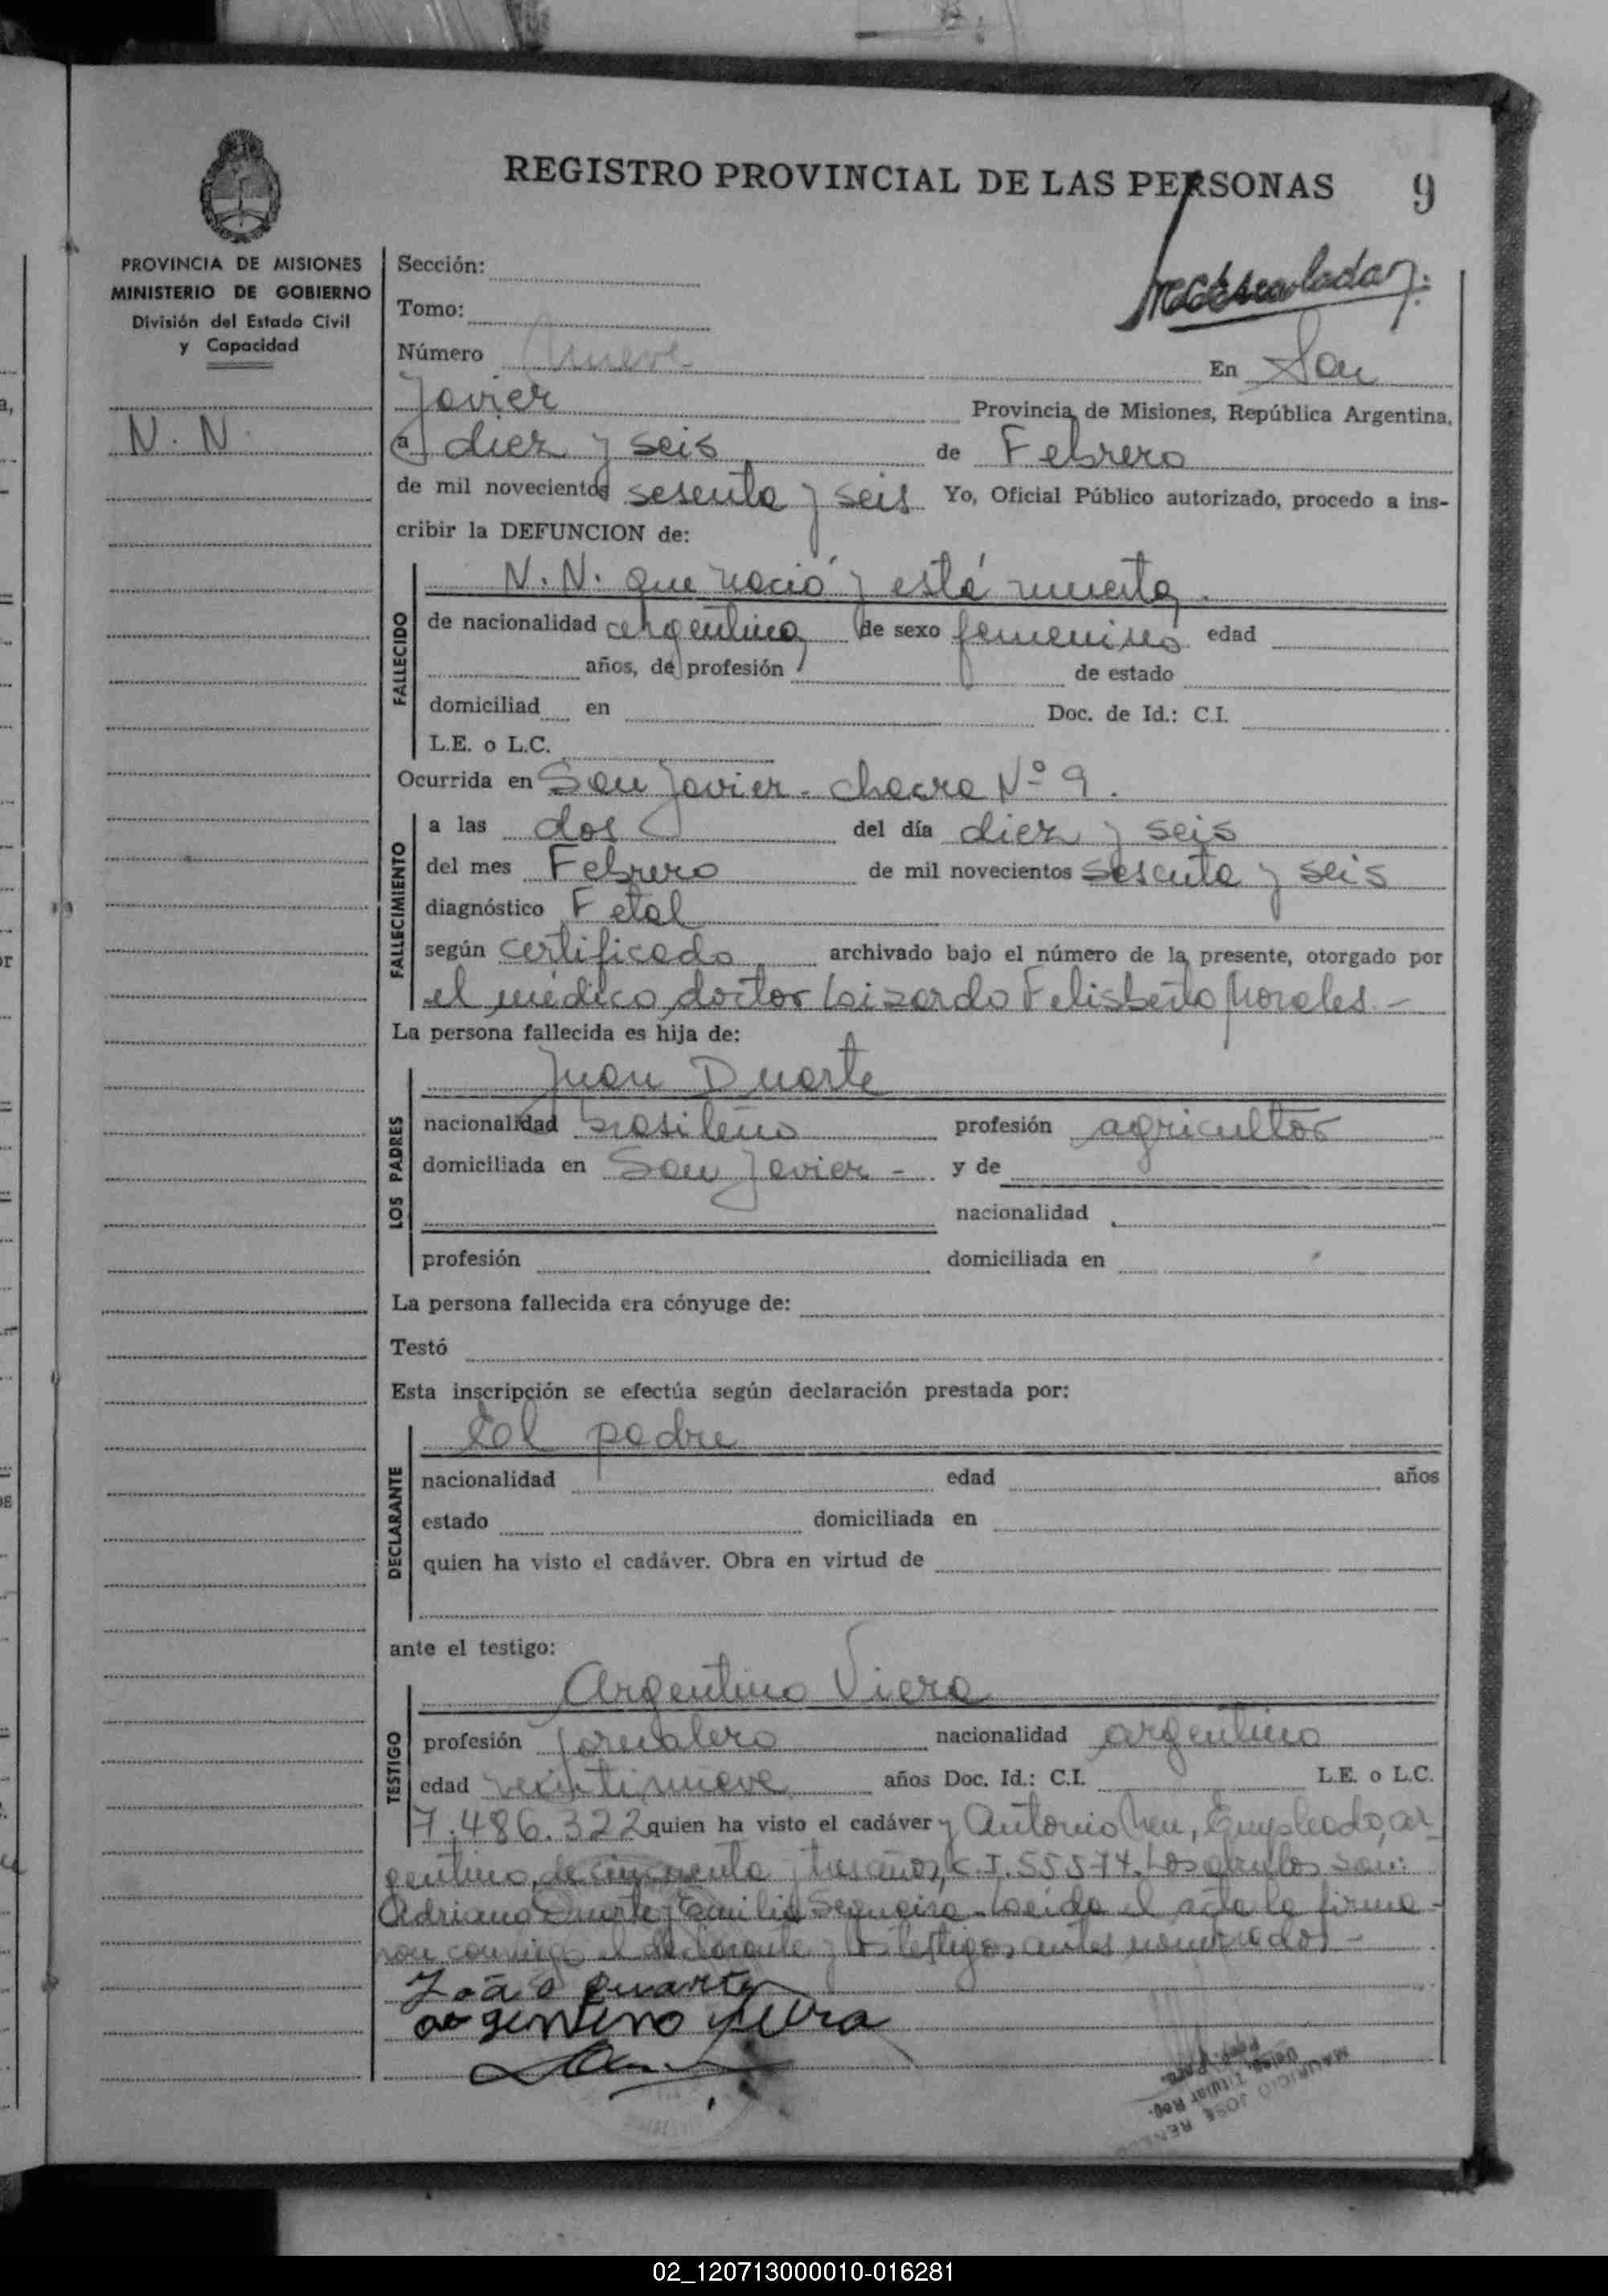 REGISTRO PROVINCIAL DE LAS PERSONAS 9
PROVINCIA DE MISIONES
MINISTERIO DE GOBIERNO
División del Estado Civil
y Capacidad
N. N.
Sección:
Tomo:
Número nueve En San
Javier Provincia de Misiones, República Argentina,
a diez y seis de Febrero
de mil novecientos sesenta y seis Yo, Oficial Público autorizado, procedo a ins-
cribir la DEFUNCION de:
FALLECIDO
N. N. que nació y está muerta.
de nacionalidad argentina de sexo femenino edad
años, de profesión de estado
domiciliad en Doc. de Id.: C.I.
L.E. o L.C.
Ocurrida en San Javier - chacra Nº 9.
FALLECIMIENTO
a las dos del día diez y seis
del mes Febrero de mil novecientos sesenta y seis
diagnóstico Fetal
según certificado archivado bajo el número de la presente, otorgado por
el médico doctor Lizardo Felisberto Morales -
La persona fallecida es hija de:
LOS PADRES
Juan Duarte
nacionalidad brasileño profesión agricultor
domiciliada en San Javier - y de
nacionalidad
profesión domiciliada en
La persona fallecida era cónyuge de:
Testó
Esta inscripción se efectúa según declaración prestada por:
DECLARANTE
El padre
nacionalidad edad años
estado domiciliada en
quien ha visto el cadáver. Obra en virtud de
ante el testigo:
TESTIGO
Argentino Viera
profesión jornalero nacionalidad argentino
edad veintinueve años Doc. Id.: C.I. L.E. o L.C.
7.486.322 quien ha visto el cadáver y Antonio Empleado, ar-
gentino, de cincuenta y tres años, C.I. 55574. Los abuelos son:
Adriano Duarte y Emilia Sequeira. Leída el acta la firma-
ron conmigo el declarante y los testigos antes nombrados -
João Duarte
argentino Viera
MAURICIO JOSE
Titular Reg.
02_120713000010-016281